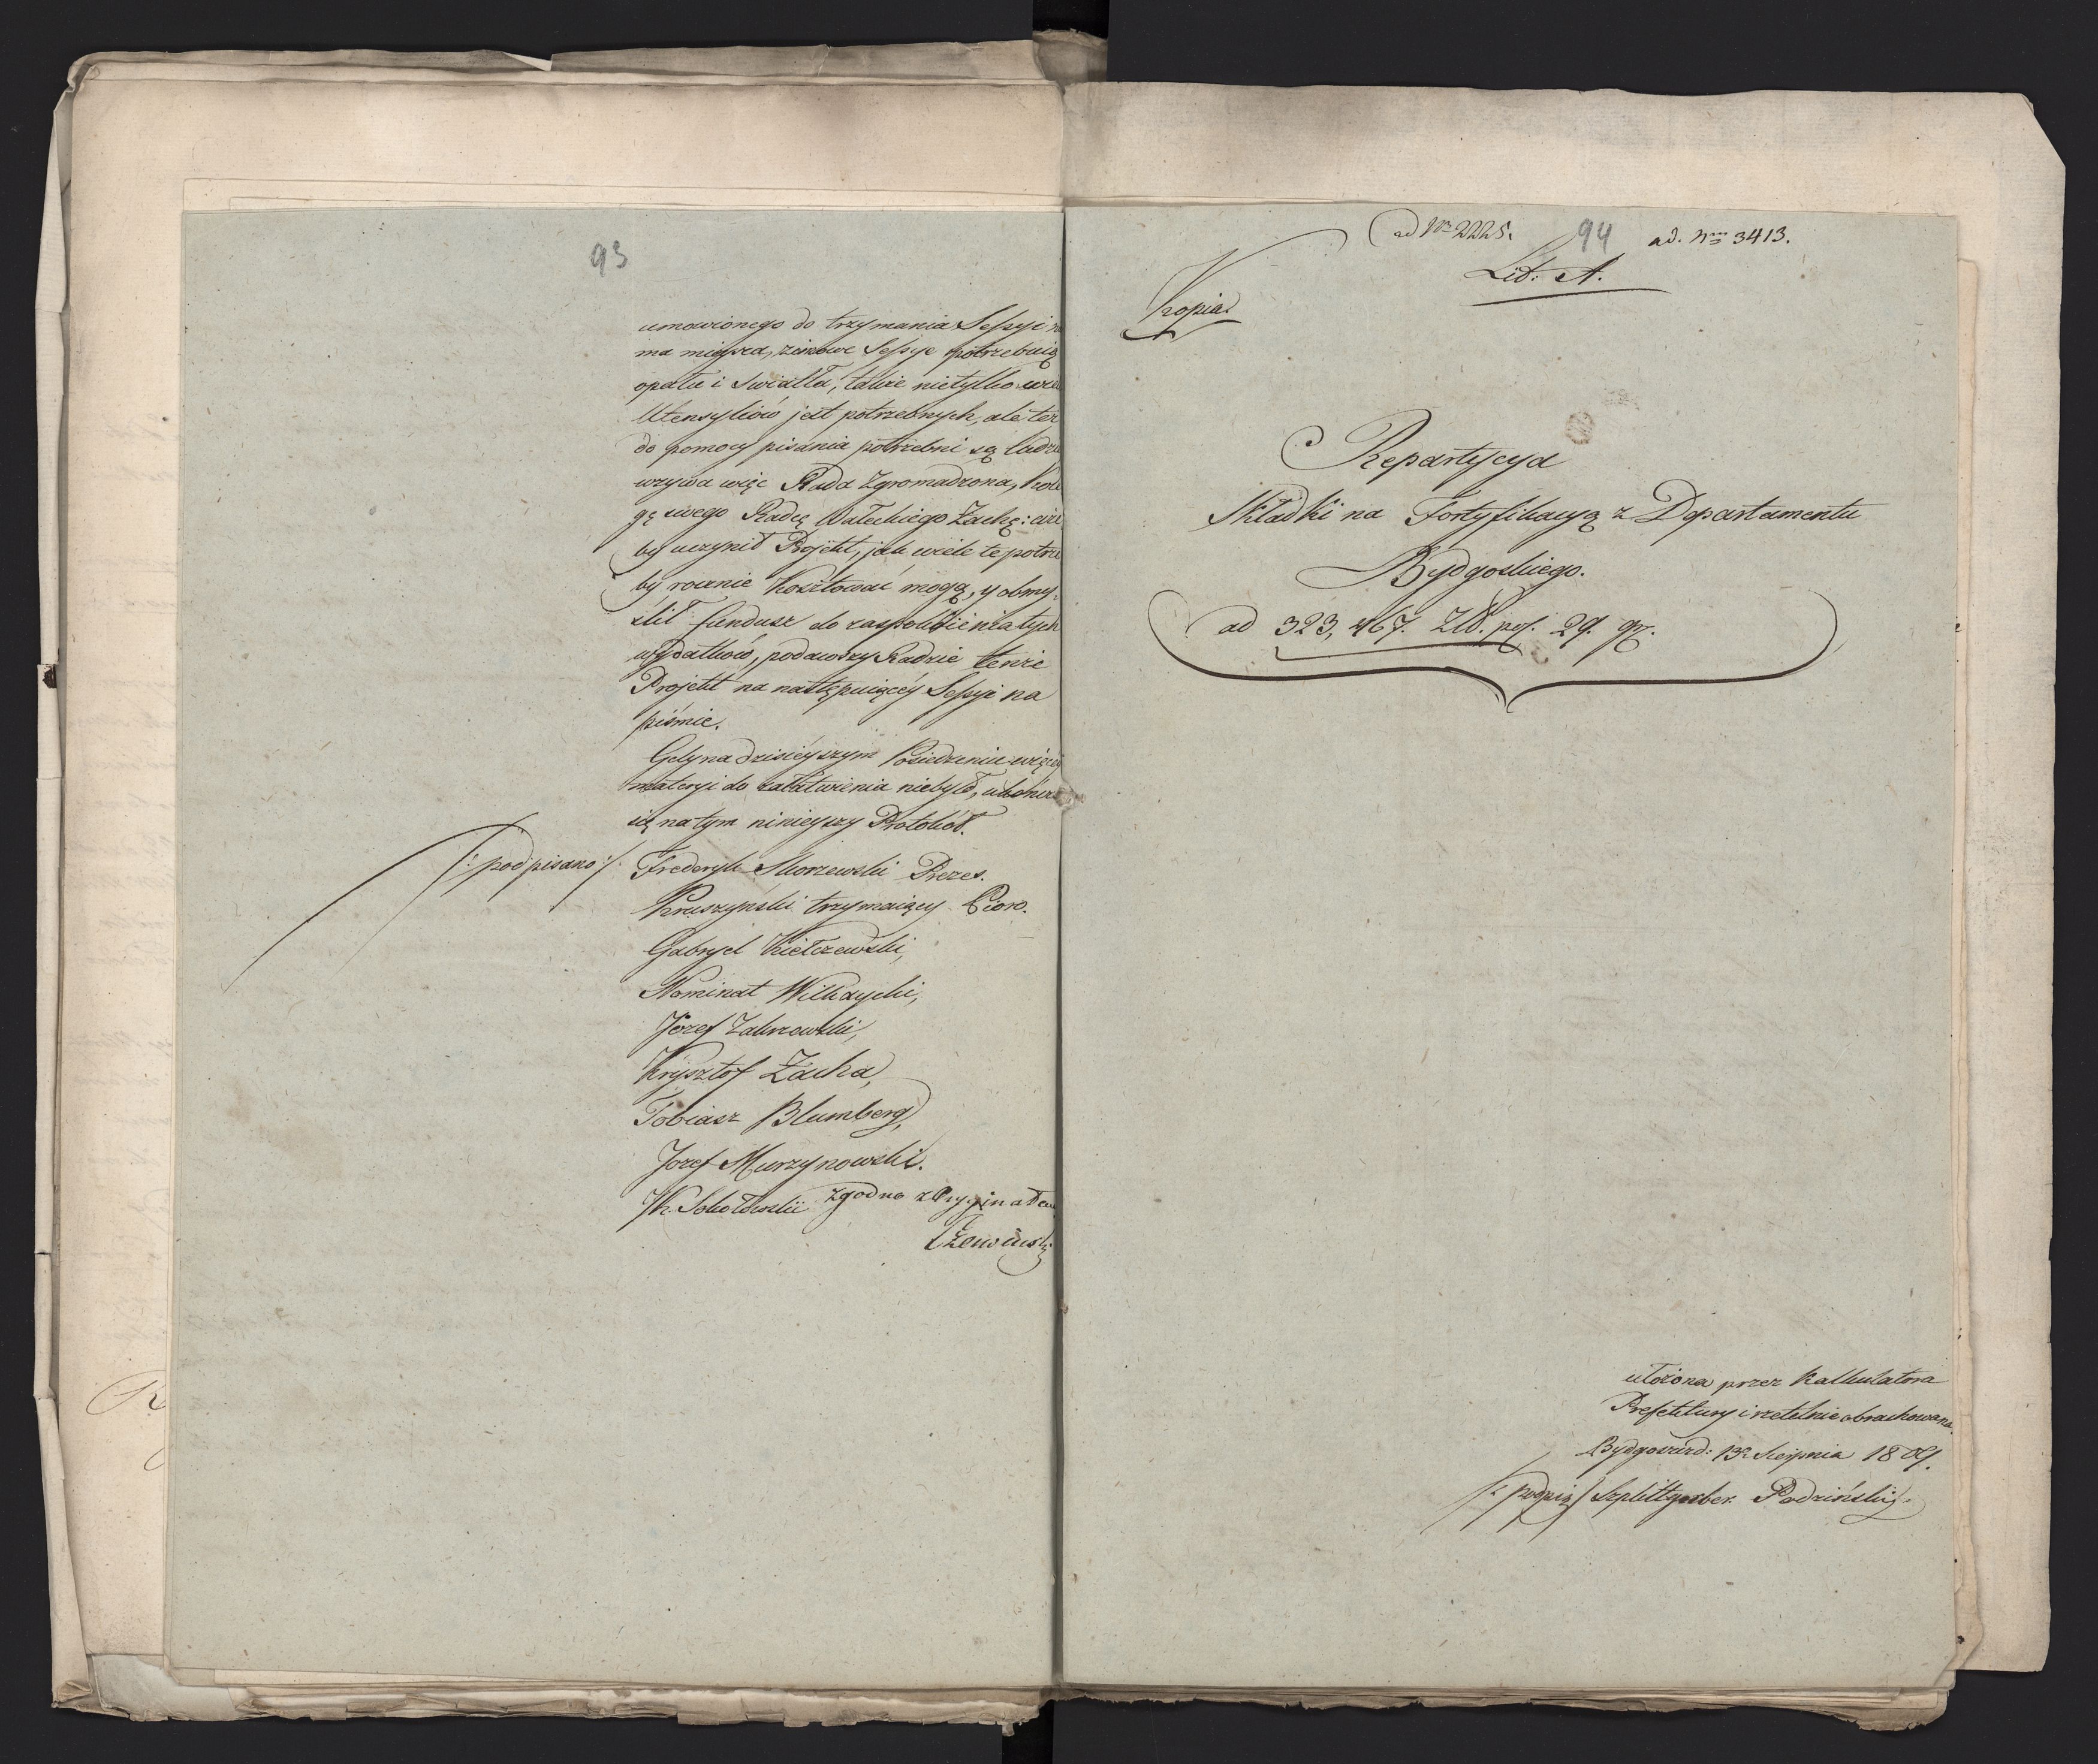 93
umowionego do trzymania Sessyi
ma mieysca, zimowe Sessye potrzebuią
opału i światła, także nietylko
Utensyliów jest potrzebnych, ale też
do pomocy pisania potrzebni są ludzie
wzywa więc Rada Zgromadzona, Kole
gę swego Radcę Wałeckiego Zachę:
by uczynił Projekt, jak wiele te potrze
by rocznie kosztować mogą, y obmy:
ślił fundusz do zaspokoienia tych
wydatków, podawszy Radzie tenże
Projekt na następuiącéy Sessyi na
piśmie.
Gdy na dzisieyszym Posiedzeniu więcey
materyi do załatwienia niebyło, ukończa
się na tym ninieyszy Protokół.
/: podpisano :/
Frederyk Skorzewski Prezes.
Kruszyński trzymaiący Pioro.
Gabryel Kiełczewski,
Nominat Wilkxycki,
Józef Zabrzewski,
Krysztof Zacha,
Tobiasz Blumberg,
Jozef Murzynowski.
JK. Sokołowski zgodno z Oryginałem
94
ad Nr 2225.
ad. Nrm 3413.
Lit: A.
Kopia
Repartycya
Składki na Fortyfikacyą z Departamentu
Bydgoskiego.
ad 323,467. Zł. pol. 29. gr.
ułożona przez Kalkulatora
Prefektury i rzetelnie obrachowana.
Bydgoszcz d: 13 Sierpnia 1809.
/: podpis / Szplittgerber. Radziński /.